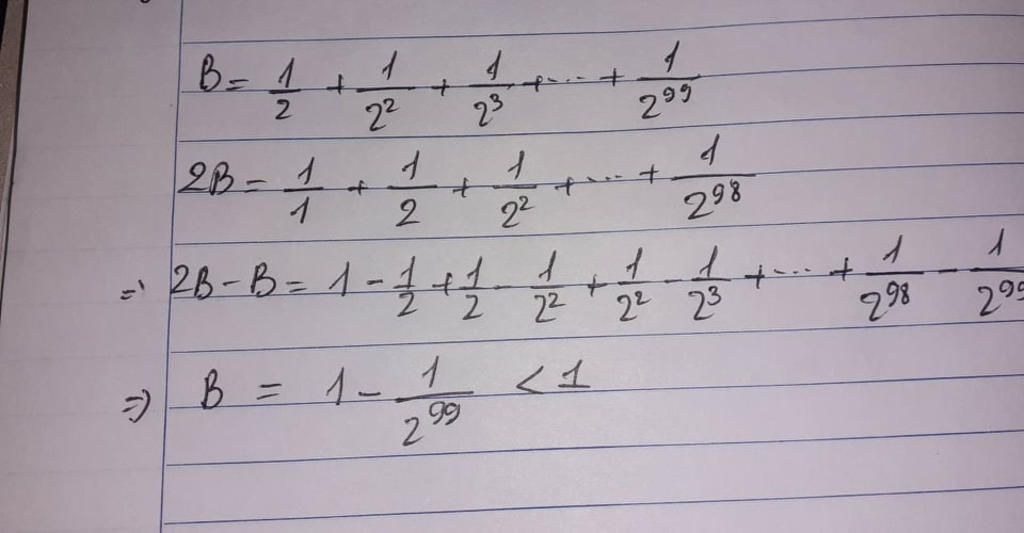 B = 1/2 + 1/2² + 1/2³ + ... + 1/2⁹⁹
2B = 1/1 + 1/2 + 1/2² + ... + 1/2⁹⁸
=> 2B - B = 1 - 1/2 + 1/2 - 1/2² + 1/2² - 1/2³ + ... + 1/2⁹⁸ - 1/2⁹⁹
=> B = 1 - 1/2⁹⁹ < 1